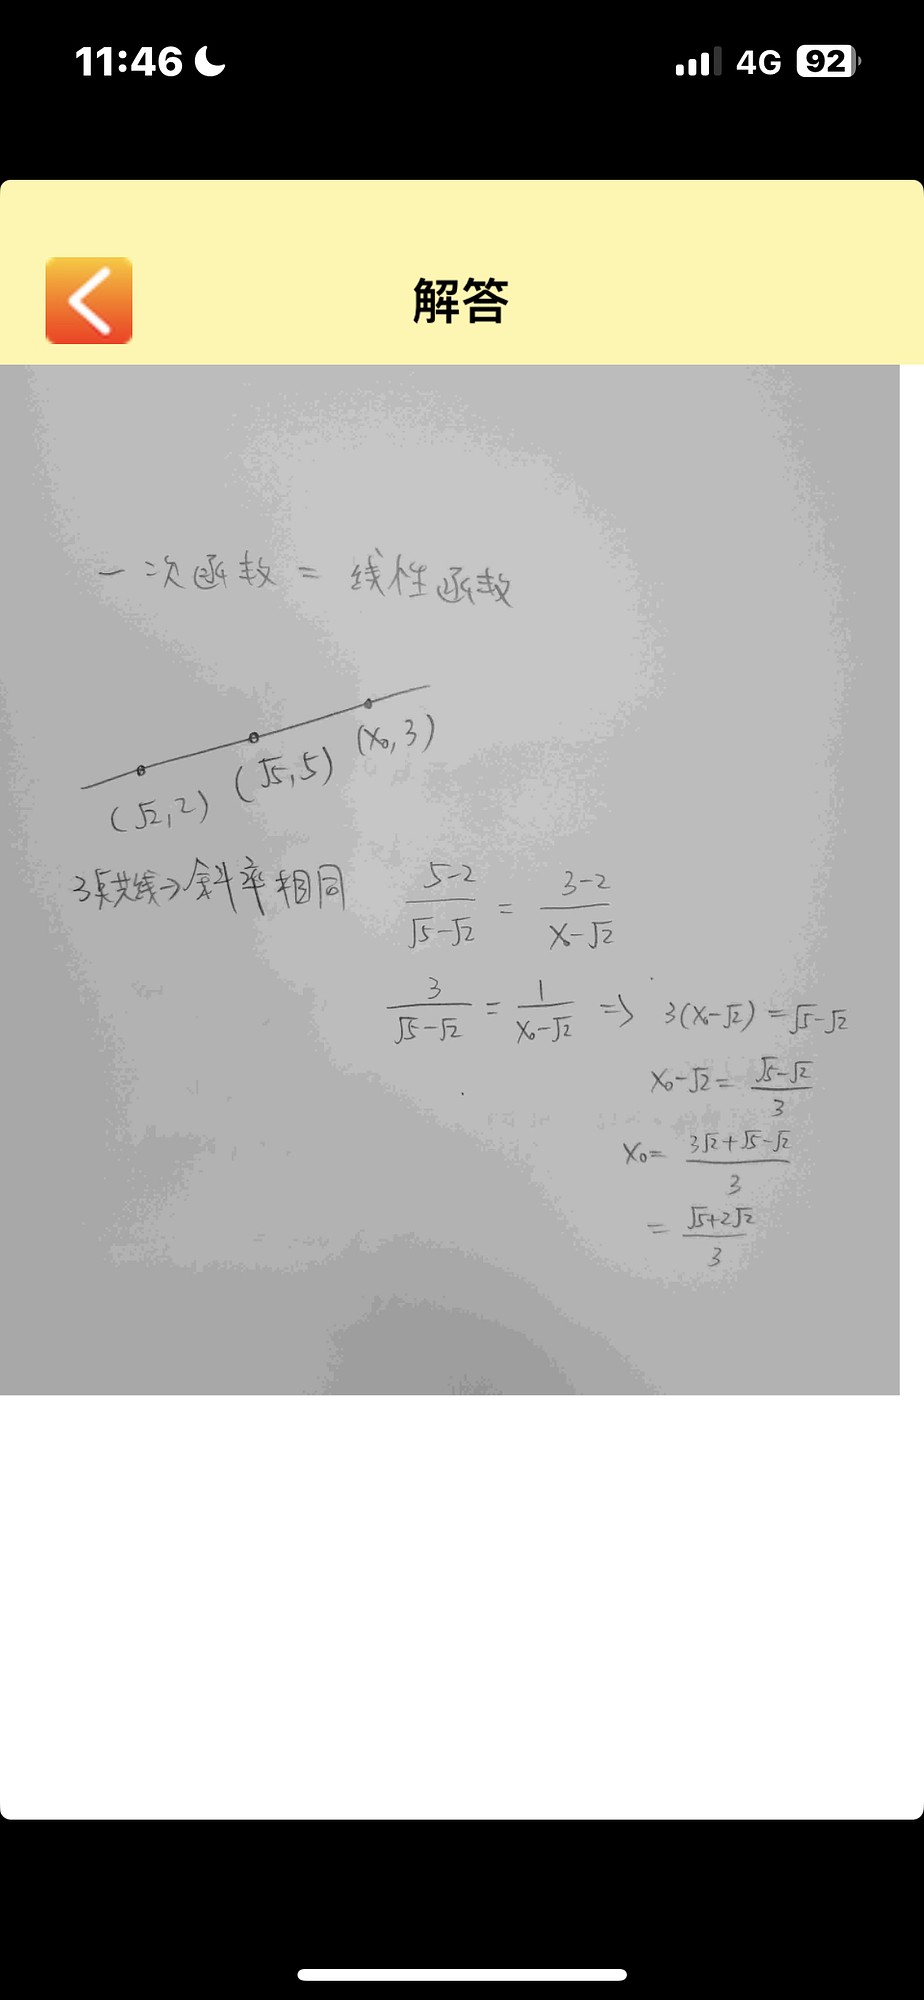 11:46
4G
92
解答
一次函数 = 线性函数
(√2,2) (√5,5) (x₀,3)
3点共线→斜率相同
(5-2)/(√5-√2) = (3-2)/(x-√2)
3/(√5-√2) = 1/(x₀-√2) ⇒ 3(x₀-√2) = √5-√2
x₀-√2 = (√5-√2)/3
x₀= (3√2+√5-√2)/3
= (√5+2√2)/3